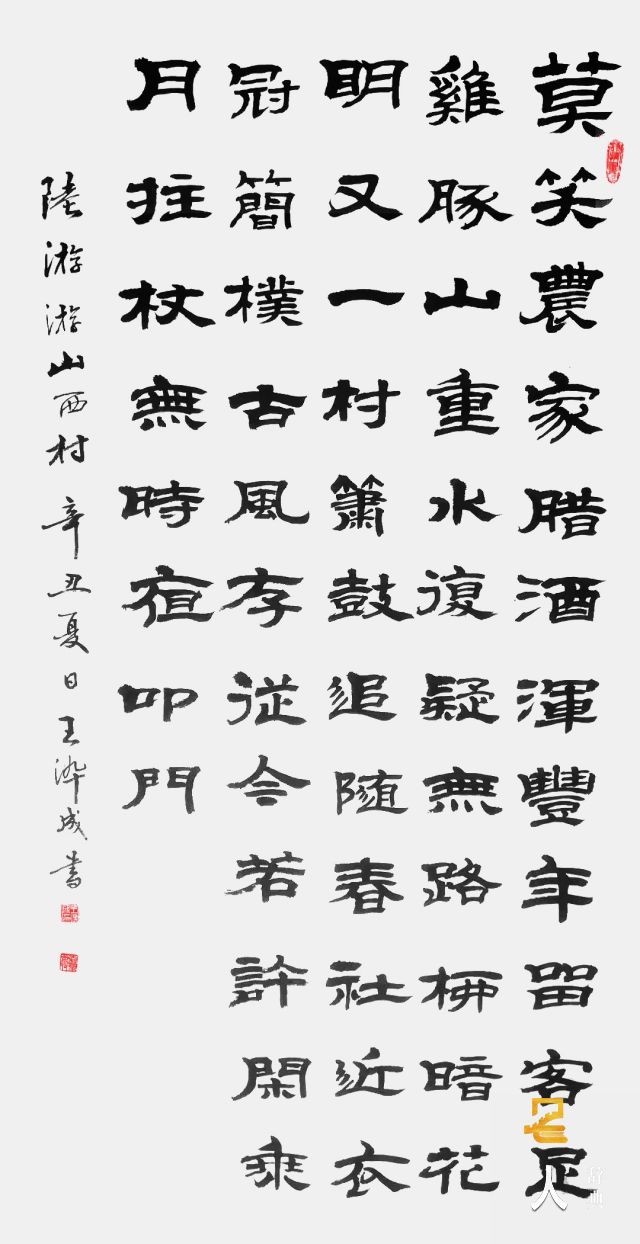 莫笑農家腊酒渾豐年留客足
雞豚山重水復疑無路柳暗花
明又一村簫鼓追随春社近衣
冠簡樸古風存從今若許閑乘
月拄杖無時夜叩門
陸游游山西村辛丑夏日王成書
人